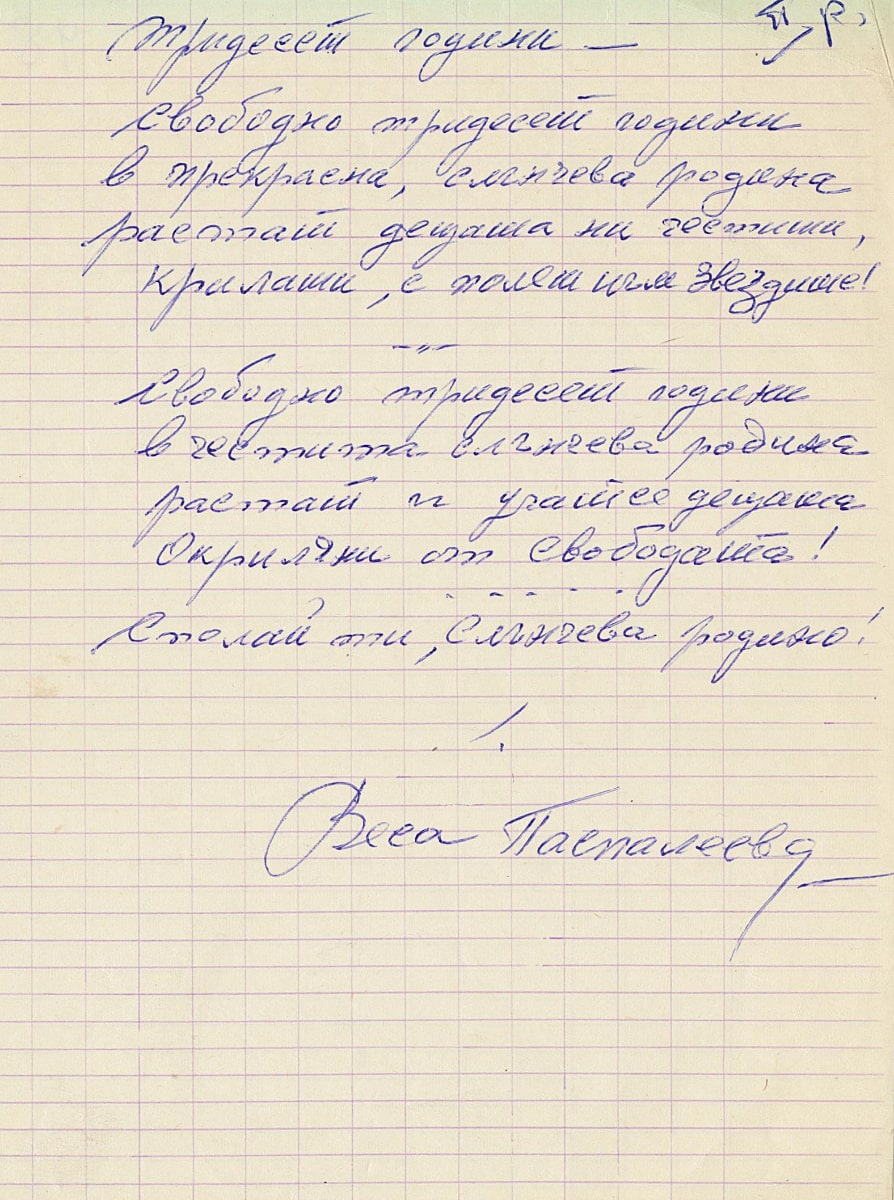 П. р.
Тридесет години —
Свободно тридесет години
в прекрасна, слънчева родина
растат децата ни честити,
крилати, с полет към звездите!
—〃—
Свободно тридесет години
в честита слънчева родина
растат и учат се децата
Окриляни от свободата!
- - - - - -
Сполай ти, Слънчева родино!
Веса Паспалеева